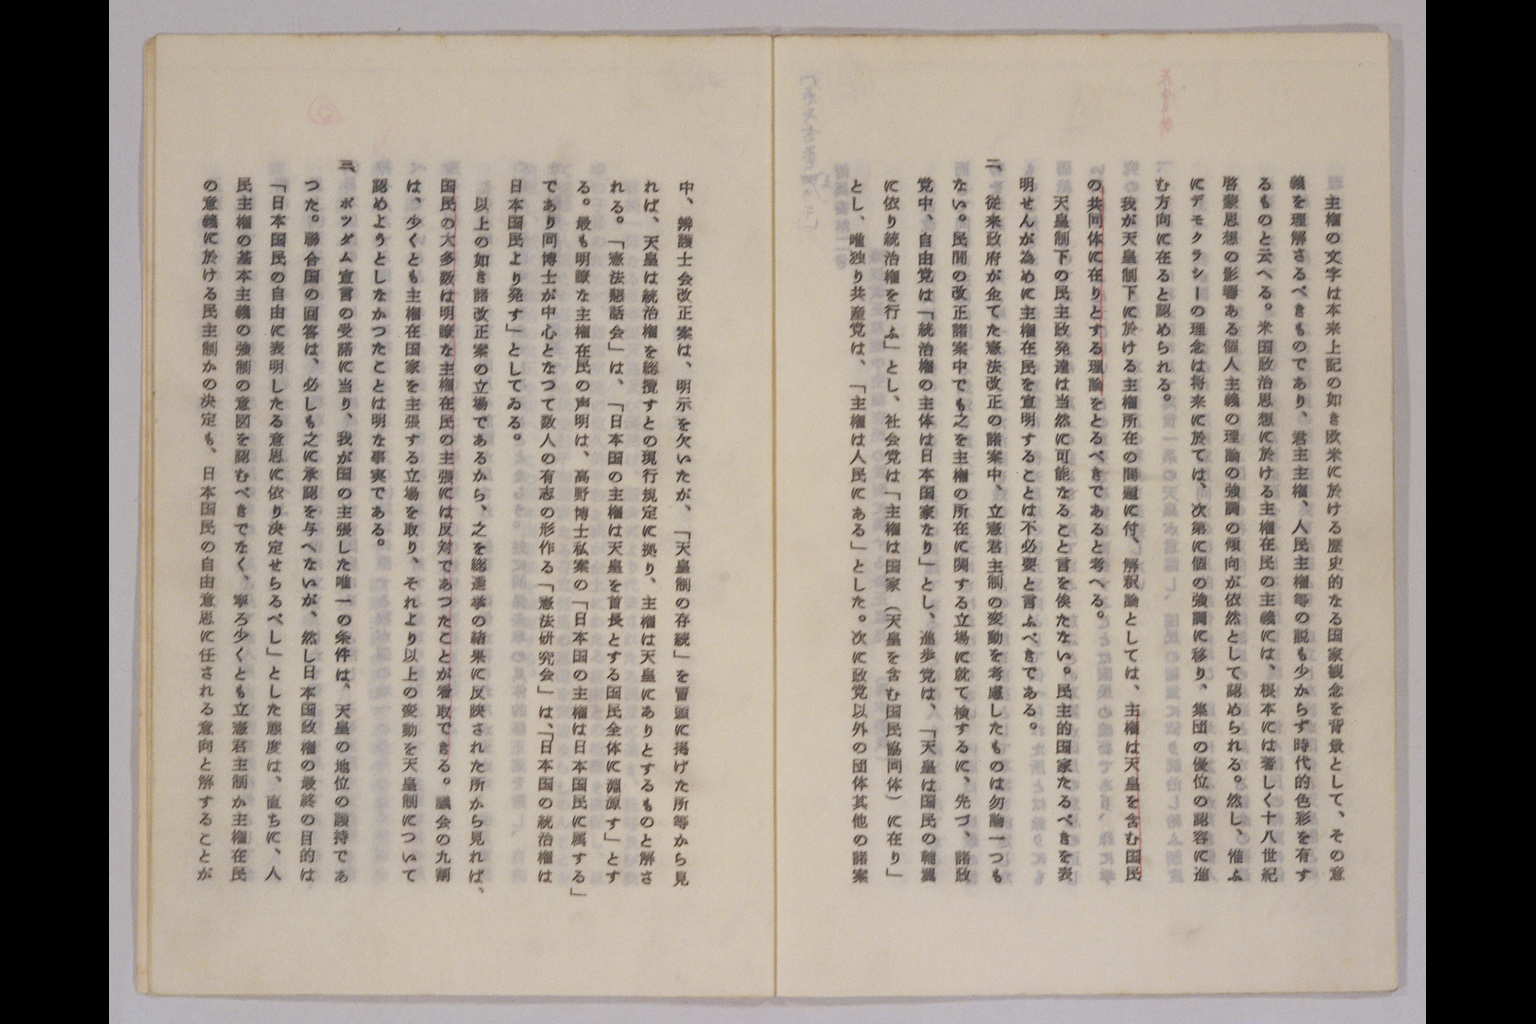 主権の文字は本来上記の如き欧米に於ける歴史的なる国家観念を背景として、その意
義を理解さるべきものであり、君主主権、人民主権等の説も少からず時代的色彩を有す
るものと云へる。米国政治思想に於ける主権在民の主義には、根本には著しく十八世紀
啓蒙思想の影響ある個人主義の理論の強調の傾向が依然として認められる。然し、惟ふ
にデモクラシーの理念は将来に於ては、次第に個の強調に移り、集団の優位の認容に進
む方向に在ると認められる。
我が天皇制下に於ける主権所在の問題に付、解釈論としては、主権は天皇を含む国民
の共同体に在りとする理論をとるべきであると考へる。
天皇制下の民主政発達は当然に可能なること言を俟たない。民主的国家たるべきを表
明せんが為めに主権在民を宣明することは不必要と言ふべきである。
二、従来政府が企てた憲法改正の諸案中、立憲君主制の変動を考慮したものは勿論一つも
ない。民間の改正諸案中でも之を主権の所在に関する立場に就て検するに、先づ、諸政
党中、自由党は「統治権の主体は日本国家なり」とし、進歩党は、「天皇は国民の輔翼
に依り統治権を行ふ」とし、社会党は「主権は国家（天皇を含む国民協同体）に在り」
とし、唯独り共産党は、「主権は人民にある」とした。次に政党以外の団体其他の諸案
中、辨護士会改正案は、明示を欠いたが、「天皇制の存続」を冒頭に掲げた所等から見
れば、天皇は統治権を総攬すとの現行規定に拠り、主権は天皇にありとするものと解さ
れる。「憲法懇話会」は、「日本国の主権は天皇を首長とする国民全体に淵源す」とす
る。最も明瞭な主権在民の声明は、高野博士私案の「日本国の主権は日本国民に属する」
であり同博士が中心となつて数人の有志の形作る「憲法研究会」は、「日本国の統治権は
日本国民より発す」としてゐる。
以上の如き諸改正案の立場であるから、之を総選挙の結果に反映された所から見れば、
国民の大多数は明瞭な主権在民の主張には反対であつたことが看取できる。議会の九割
は、少くとも主権在国家を主張する立場を取り、それより以上の変動を天皇制について
認めようとしなかつたことは明な事実である。
三、ポツダム宣言の受諾に当り、我が国の主張した唯一の条件は、天皇の地位の護持であ
つた。聯合国の回答は、必しも之に承認を与へないが、然し日本国政権の最終の目的は
「日本国民の自由に表明したる意思に依り決定せらるべし」とした態度は、直ちに、人
民主権の基本主義の強制の意図を認むべきでなく、寧ろ少くとも立憲君主制か主権在民
の意義に於ける民主制かの決定も、日本国民の自由意思に任される意向と解することが